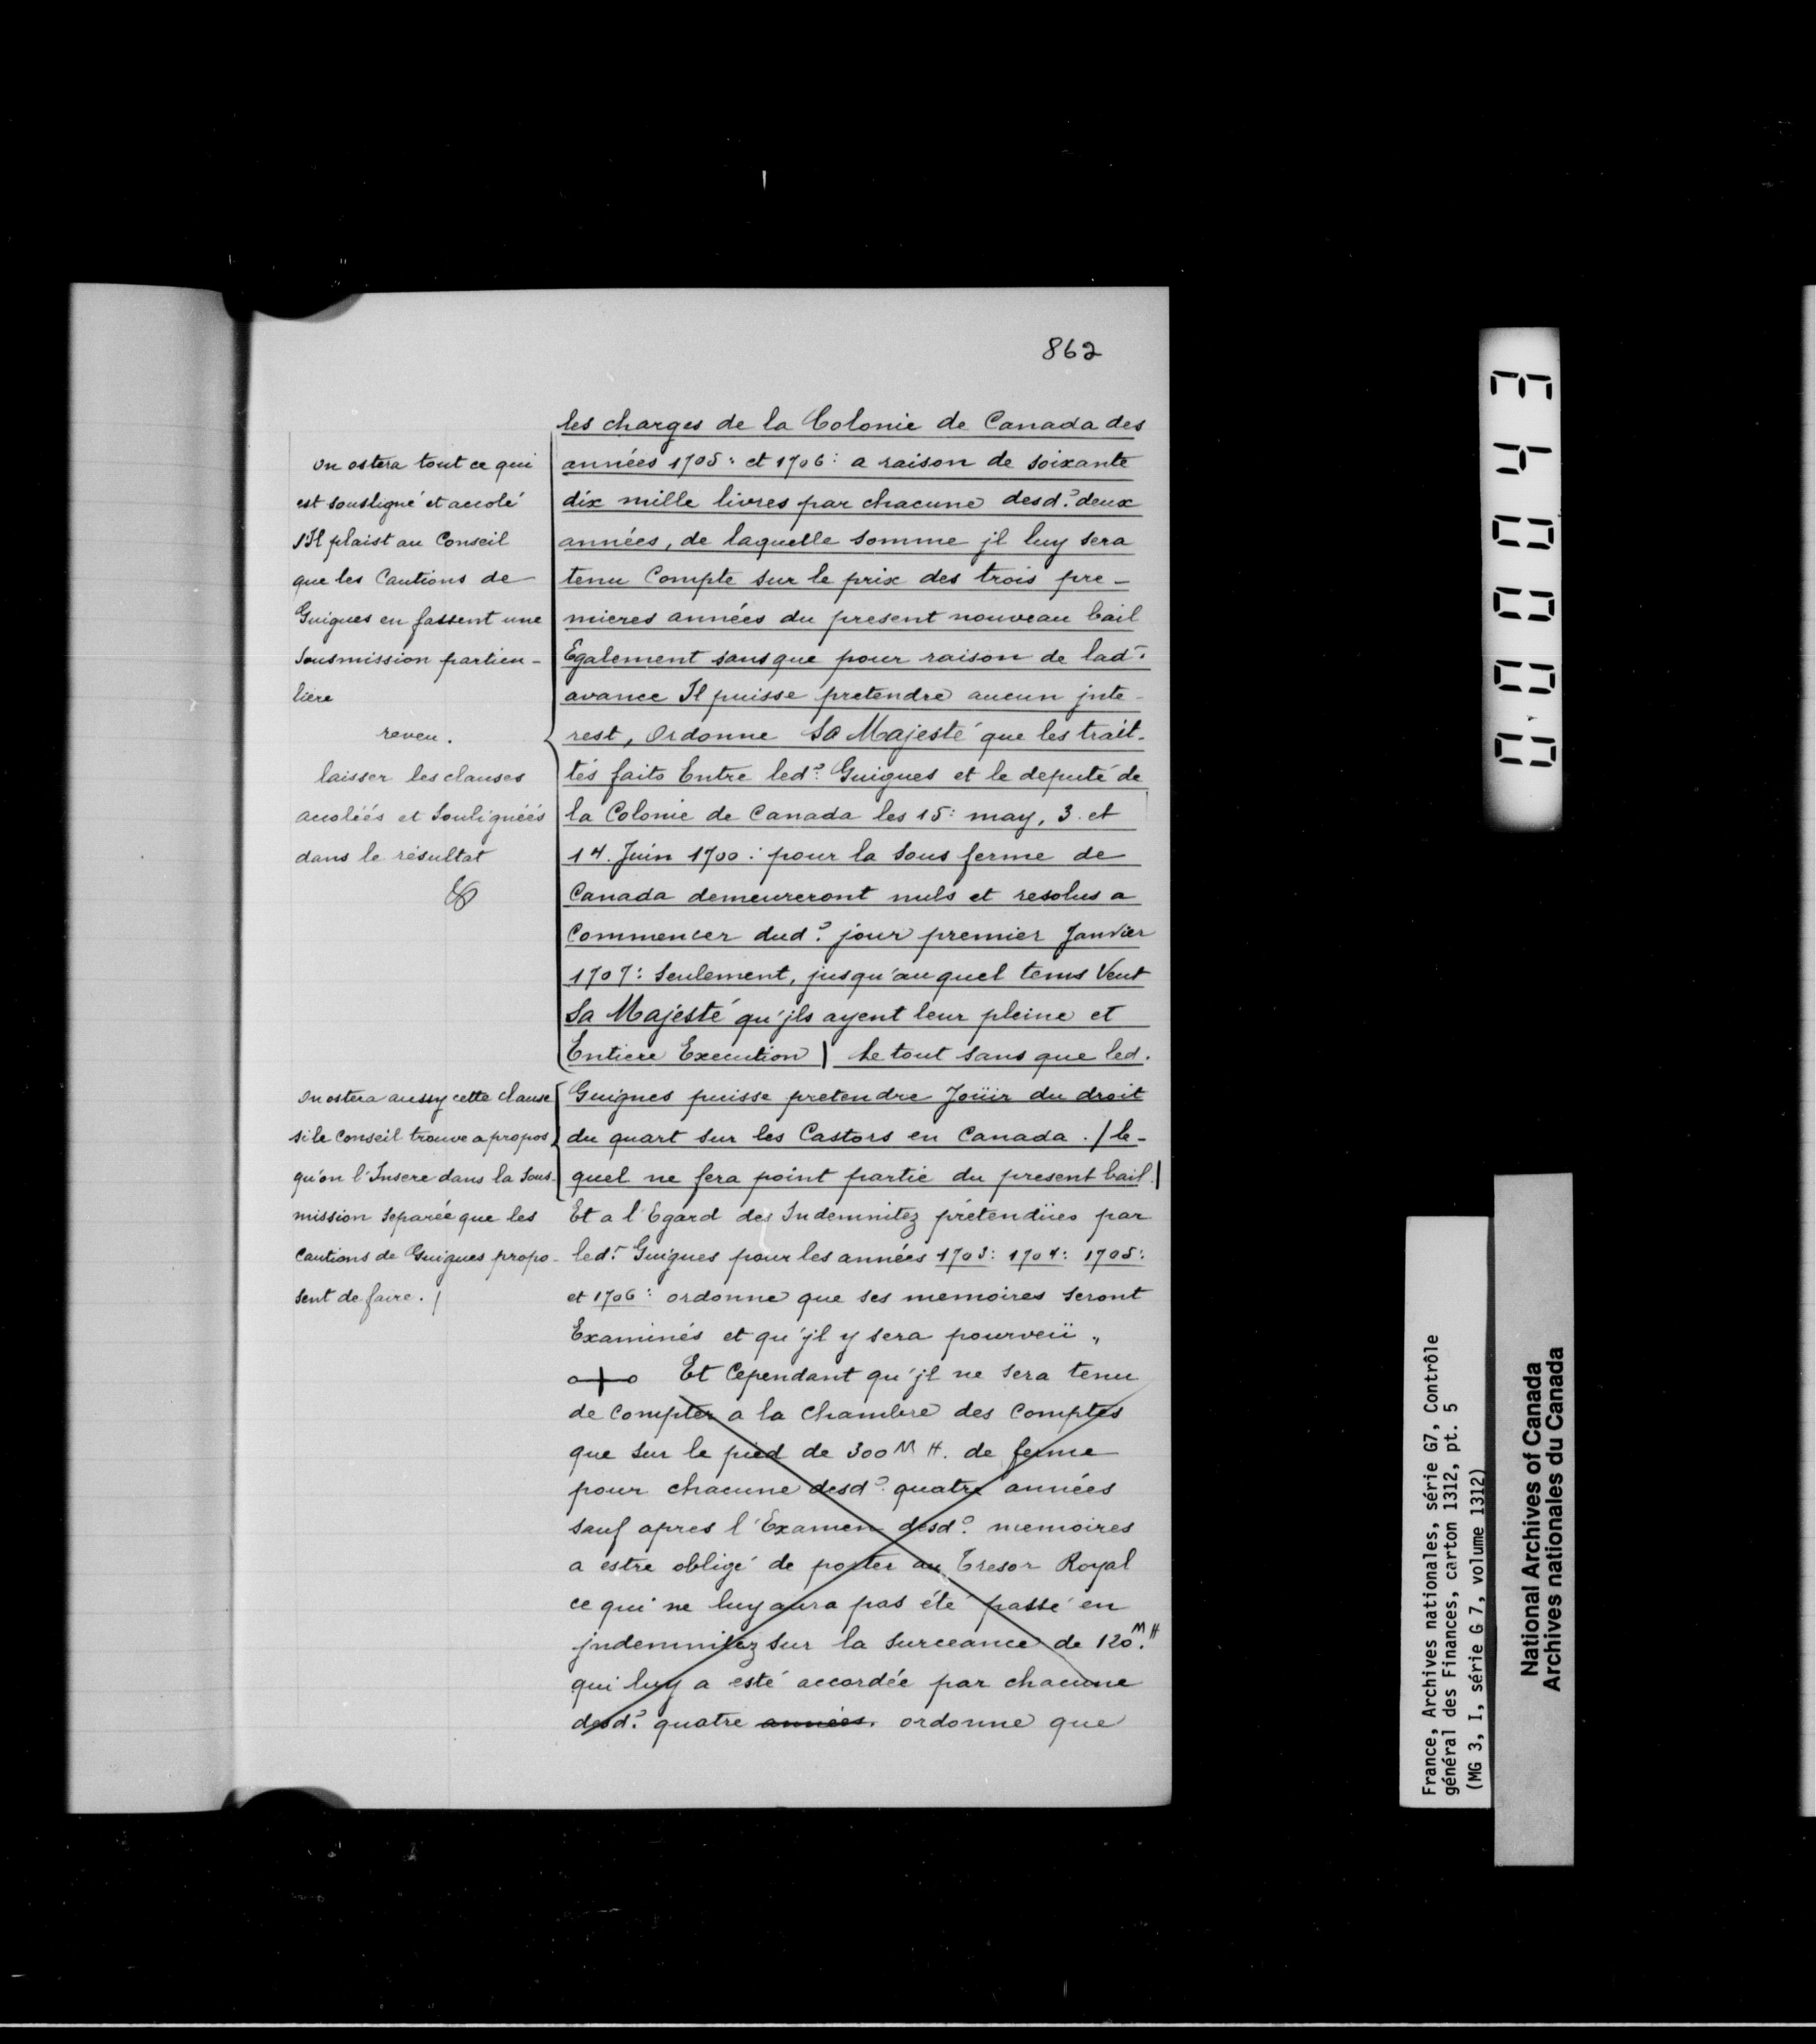 862
les charges de la Colonie de Canada des
années 1705: et 1706: a raison de soixante
dix mille livres par chacune desd.? deux
années, de laquelle somme jl luy sera
tenu Compte sur le prix des trois pre-
mieres années du present nouveau bail
Egalement sans que pour raison de lad.:
avance Il puisse pretendre aucun jnte-
rest, Ordonne Sa Majesté que les trait-
tés faits Entre led.? Guigues et le deputé de
la Colonie de Canada les 15: may, 3. et
14. Juin 1700: pour la Sous ferme de
Canada demeureront nuls et resolus a
Commencer dud.? jour premier Janvier
1707: Seulement, jusqu'auquel tems Veut
Sa Majesté qu'jls ayent leur pleine et
Entiere Execution | Le tout sans que led.
Guigues puisse pretendre Joüir du droit
du quart sur les Castors en Canada. / le-
quel ne fera point partie du present bail. |
Et a l'Egard des Indemnitez prétendües par
led.r Guigues pour les années 1703: 1704: 1705:
et 1706: ordonne que ses memoires seront
Examinés et qu'jl y sera pourveü „
o+o Et Cependant qu'jl ne sera tenu
de compter a la Chambre des Comptes
que sur le pied de 300 M ₶. de ferme
pour chacune desd.? quatre années
sauf apres l'Examen desd.? memoires
a estre obligé de porter au Tresor Royal
ce qui ne luy aura pas été passé en
jndemnitez sur la surceance de 120.M ₶
qui luy a esté accordée par chacune
desd.? quatre années. ordonne que
on ostera tout ce qui
est sousligné et accolé
s'Il plaist au Conseil
que les Cautions de
Guigues en fassent une
Sousmission particu-
liere
reveu.
laisser les clauses
accoléés et Soulignéés
dans le résultat
On ostera aussy cette clause
si le Conseil trouve a propos
qu'on l'Insere dans la Sous-
mission Separée que les
Cautions de Guigues propo-
sent de faire. /
00043
France, Archives nationales, série G7, Contrôle
général des Finances, carton 1312, pt. 5
(MG 3, I, série G 7, volume 1312)
National Archives of Canada
Archives nationales du Canada